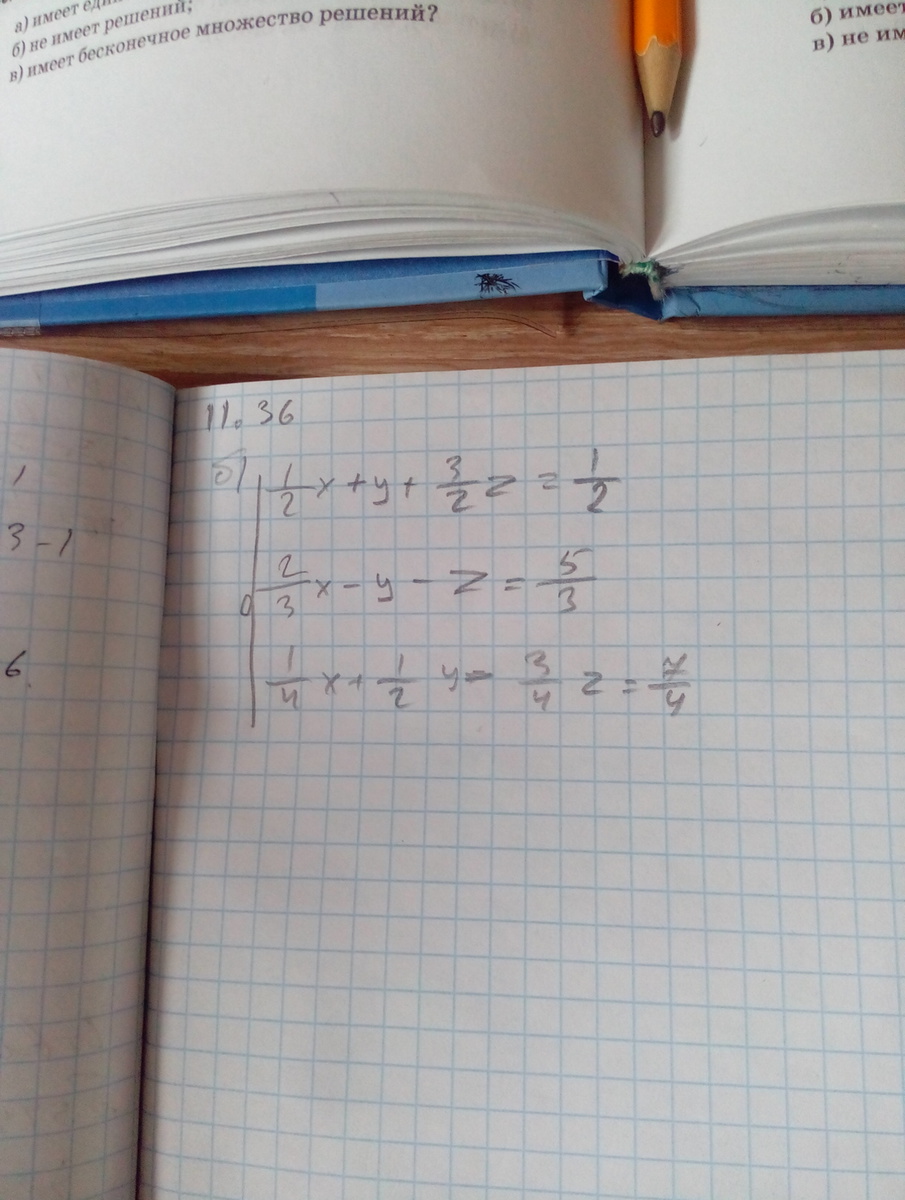 а) имеет
б) не имеет решений;
в) имеет бесконечное множество решений?
б) имеет
в) не им
11.36
1
3 - 1
6
б) 1/2 x + y + 3/2 z = 1/2
2/3 x - y - z = 5/3
1/4 x + 1/2 y - 3/4 z = 7/4